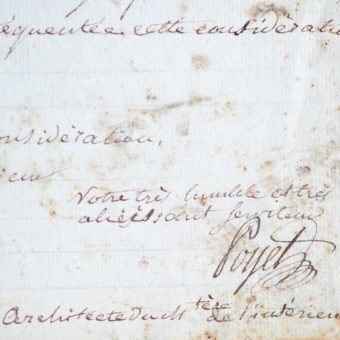 équentée cette considératio
onsidération,
ieur
Votre très humble et très
obéissant serviteur
Poyet
Architecte du M tère de l'intérieu